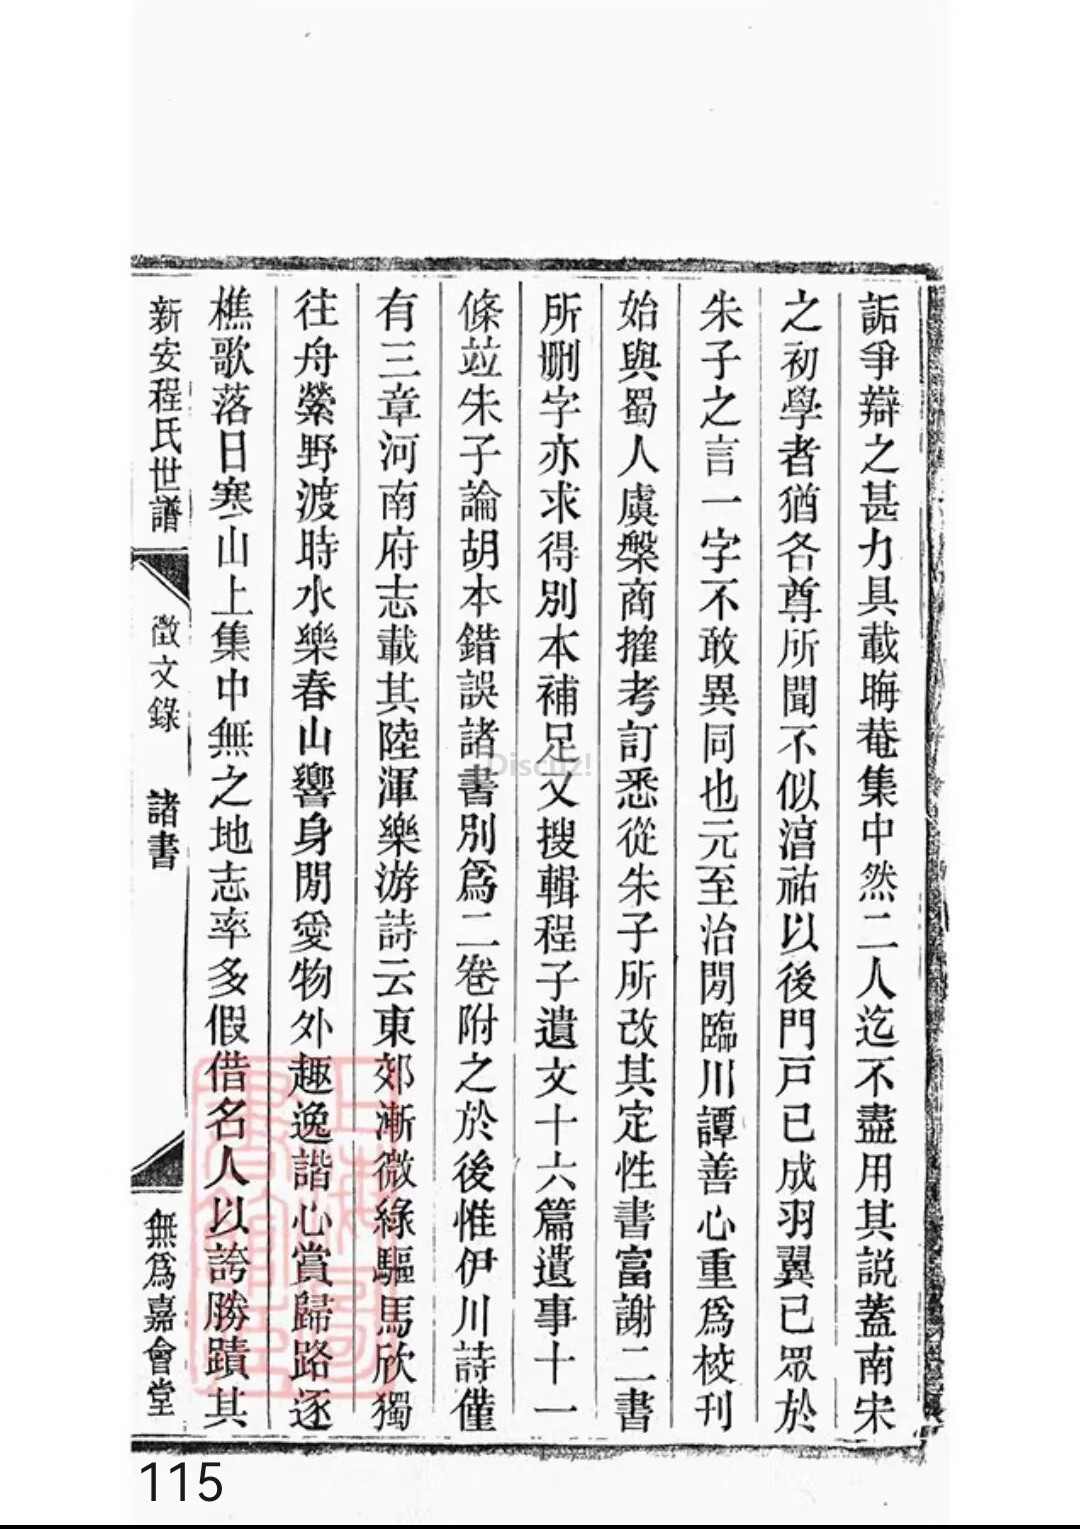 詬爭辯之甚力具載晦菴集中然二人迄不盡用其説蓋南宋
之初學者猶各尊所聞不似湻祐以後門戸已成羽翼已眾於
朱子之言一字不敢異同也元至治閒臨川譚善心重爲校刊
始與蜀人虞槃商搉考訂悉從朱子所改其定性書富謝二書
所刪字亦求得別本補足又搜輯程子遺文十六篇遺事十一
條竝朱子論胡本錯誤諸書別爲二卷附之於後惟伊川詩僅
有三章河南府志載其陸渾樂游詩云東郊漸微綠驅馬欣獨
往舟縈野渡時水樂春山響身閒愛物外趣逸諧心賞歸路逐
樵歌落日寒山上集中無之地志率多假借名人以誇勝蹟其
新安程氏世譜 徵文錄 諸書 無爲嘉會堂
Discuz!
115